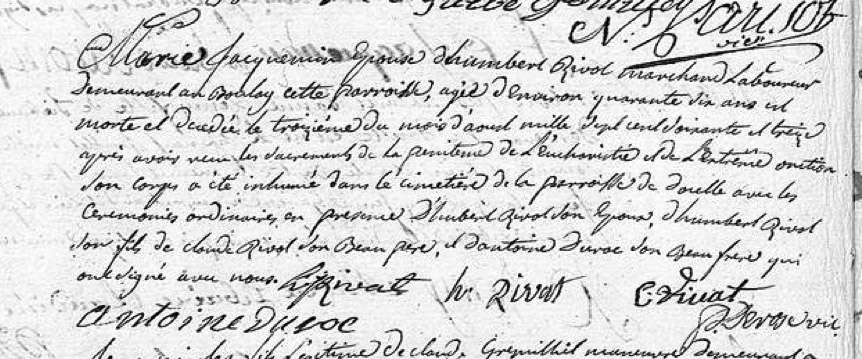 N. Parisot
vicr
Marie Jacquemin Epouse d'humbert Rivol marchand Laboureur
demeurant au Boulay cette parroisse, agée d'Environ quarante six ans est
morte et decedée le troiziéme du mois d'aoust mille sept cent soixante et treize
après avoir reçu les sacrements de la penitence de L'Eucharistie et de L'Extrême onction
son corps a été inhumé dans le cimetiére de la parroisse de avec les
Ceremonies ordinaires en presence d'humbert Rivol son Epoux, d'humbert Rivol
son fils de claude Rivol son Beau pere, et d'antoine duroc son Beau frere qui
ont signé avec nous. Rivat h. Rivat C. rivat
antoine Duroc vic.
de claude demeurant